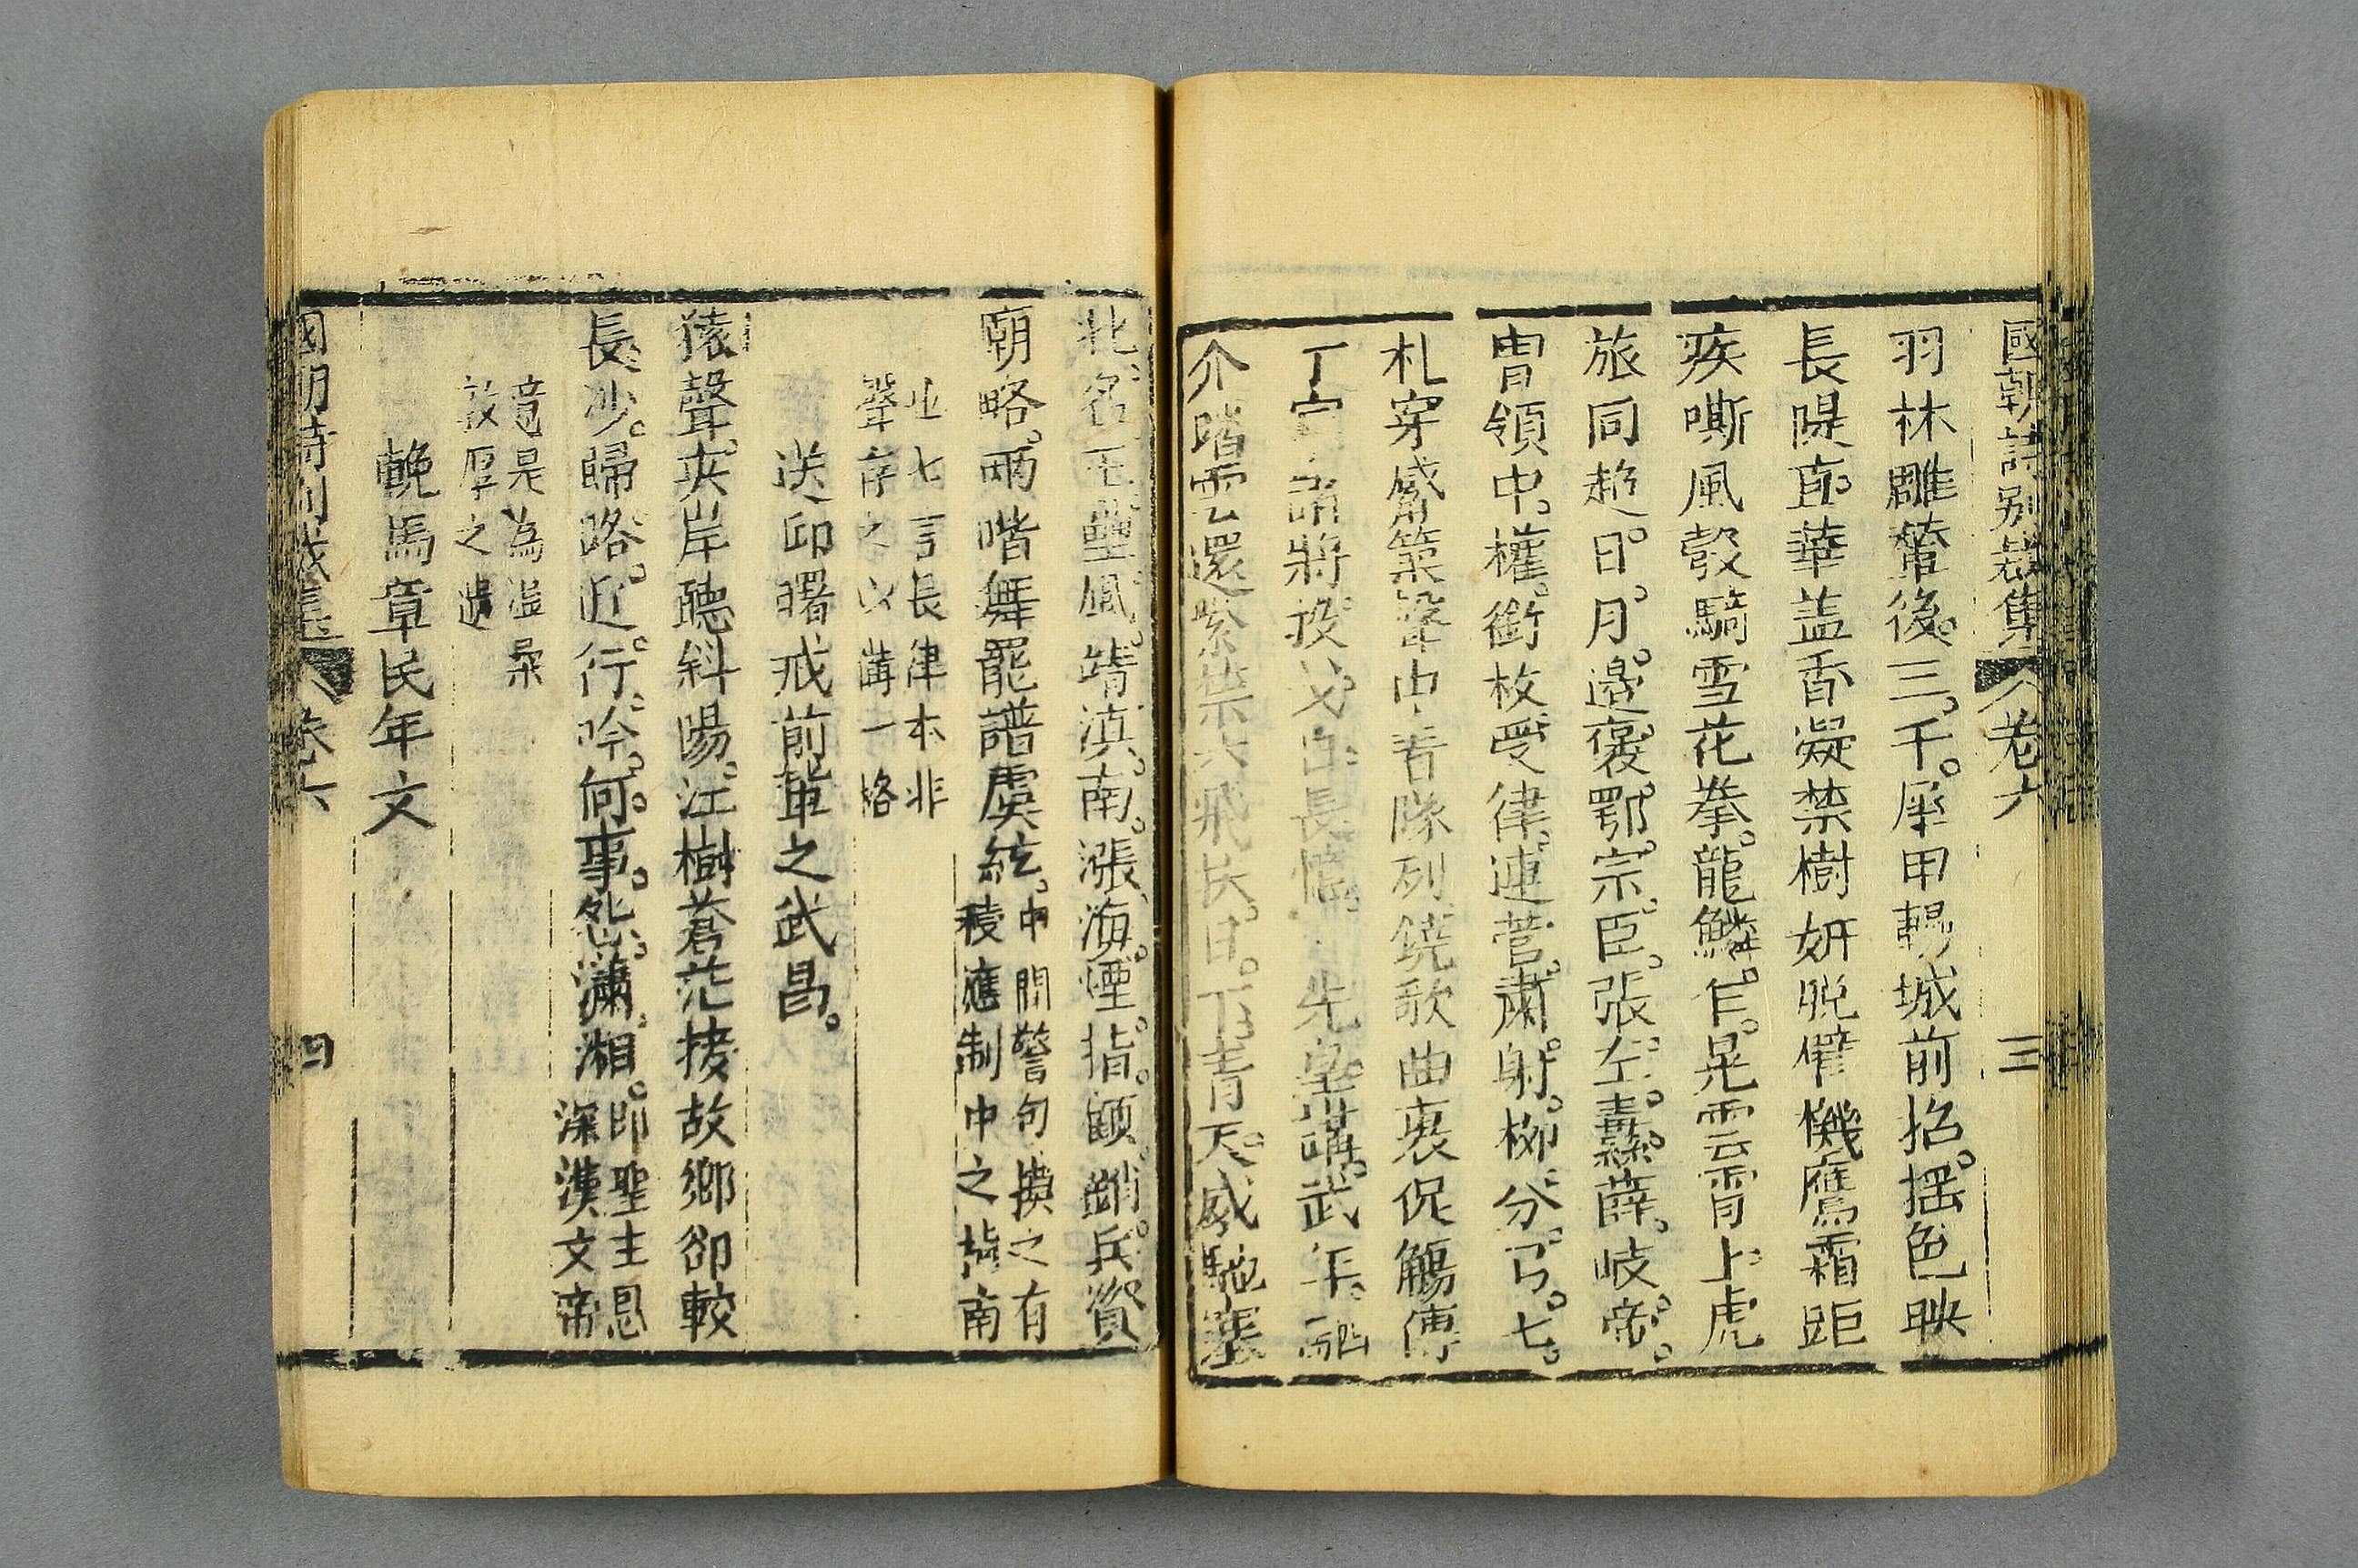 國朝詩别裁集 卷六 三
羽林雕輦後三千犀甲錫城前招搖色映
長隄直華盖香凝禁樹妍脫儺機鷹霜距
疾嘶風彀騎雪花拳龍鱗乍晃雲霄上虎
旅同趋日月邉褒鄂宗臣張左纛薛岐帝
胄領中權銜枚受律連營肅射栁分弓七
札穿觱篥聲中看隊列鐃歌曲裏侭觴傳
丁宁諸將投戈日長憶先皇講武年驅
介踏雲還紫禁六飛扶日下青天威馳塞
北名王壘風靖滇南漲海煙指顧銷兵資
廟略兩階舞罷譜虞絃中間警句摸之有
稜應制中之指南
此七言長律本非
聲存之以備一格
送邱曙戒前輩之武昌
猿聲夾岸聽斜陽江樹蒼茫接故鄉卻較
長沙歸路近行吟何事怨瀟湘即聖主恩
深漢文帝
意是為溫柔
敦厚之遺
輓馬章民年文
國朝詩别裁集 卷六 四